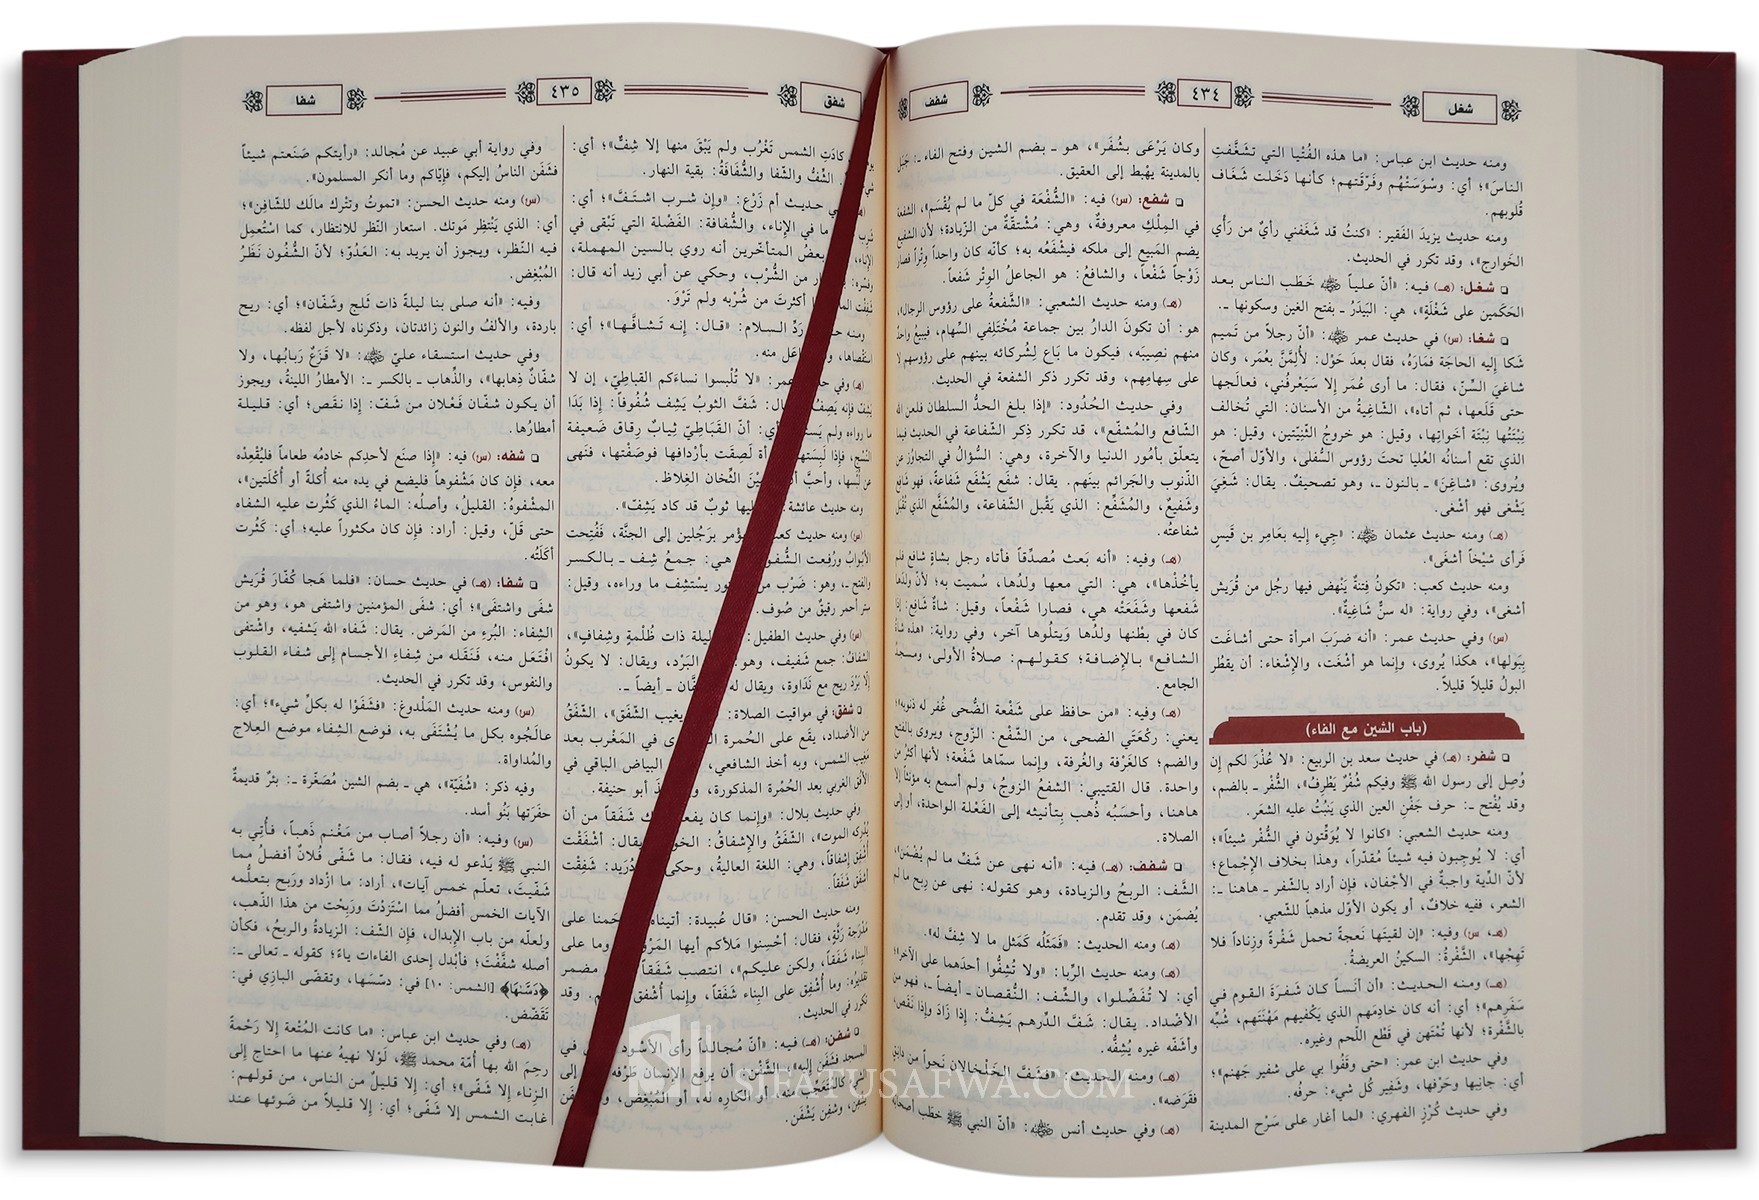 شغل
٤٣٤
شفف
ومنه حديث ابن عباس: «ما هذه الفُتْيا التي تشَغَّفتِ
الناسَ»؛ أي: وسْوَسَتْهُم وفَرّقَتهم؛ كأنها دَخَلت شَغَاف
قُلوبهم.
ومنه حديث يزيدَ الفَقير: «كنتُ قد شَغَفني رأيٌ من رَأْي
الخَوارج»، وقد تكرر في الحديث.
❏ شغل: (هـ) فيه: «أنّ علياً ﵁ خَطَب الناس بعد
الحَكَمين على شَغْلَةٍ»، هي: البَيْدَرُ ـ بفتح الغين وسكونها ـ.
❏ شغا: (س) في حديث عمر ﵁: «أنّ رجلاً من تَميم
شكا إليه الحاجَة فمَارَهُ، فقال بعدَ حَوْل: لأُلِمَّنَّ بعُمَر، وكان
شاغيَ السِّنّ، فقال: ما أرى عُمَر إلا سَيَعْرفُني، فعالَجها
حتى قَلَعها، ثم أتاه»، الشّاغِيةُ من الأسنان: التي تُخالف
نِبْتَتُها نِبْتَة أخَواتِها، وقيل: هو خروجُ الثَّنِيّتين، وقيل: هو
الذي تقع أسنانُه العُليا تحتَ رؤوس السُّفلى، والأوّل أصحّ،
ويُروى: «شاغِنَ» ـ بالنون ـ، وهو تصحيفٌ. يقال: شَغِيَ
يَشْغى فهو أشْغى.
(هـ) ومنه حديث عثمان ﵁: «جِيء إليه بعَامِر بن قَيسٍ
فَرأى شيْخاً أشغَى».
ومنه حديث كعب: «تكونُ فِتنةٌ يَنْهض فيها رجُل من قُرَيش
أشغى»، وفي رواية: «له سنٌّ شاغِيةٌ».
(س) وفي حديث عمر: «أنه ضرَبَ امرأة حتى أشاغَت
بِبَولها»، هكذا يُروى، وإنما هو أشْغَت، والإشْغاء: أن يقطُر
البولُ قليلاً قليلاً.
(باب الشين مع الفاء)
❏ شفر: (هـ) في حديث سعد بن الربيع: «لا عُذْرَ لكم إن
وُصِل إلى رسول الله ﷺ وفيكم شُفْرٌ يَطْرِفُ»، الشُّفْر ـ بالضم،
وقد يُفْتح ـ: حرف جَفْنِ العين الذي يَنبُتُ عليه الشعَر.
ومنه حديث الشعبي: «كانوا لا يُوَقِّتون في الشُّفْر شيئاً»؛
أي: لا يُوجِبون فيه شيئاً مُقدّراً، وهذا بخلاف الإِجْماع؛
لأنّ الدِّية واجبةٌ في الأجْفان، فإن أراد بالشّفر ـ هاهنا ـ:
الشعر، ففيه خلافٌ، أو يكون الأوّل مذهباً للشّعبي.
(هـ، س) وفيه: «إن لقيتَها نَعجةً تحمل شَفْرةً وزِناداً فلا
تَهِجْها»، الشَّفْرَةُ: السكينُ العريضةُ.
(هـ) ومنه الحديث: «أن أنَساً كان شَفرَةَ القوم في
سَفَرِهم»؛ أي: أنه كان خادِمَهم الذي يَكْفيهم مَهْنَتَهم، شُبّه
بالشَّفْرة؛ لأنها تُمْتَهن في قَطْع اللحم وغيره.
وفي حديث ابن عمر: «حتى وقَفُوا بي على شفير جَهنم»؛
أي: جانِبها وحَرْفها، وشَفِير كُل شيء: حرفُه.
وفي حديث كُرْزٍ الفهري: «لما أغار على سَرْح المدينة
وكان يَرْعى بشُفَر»، هو ـ بضم الشين وفتح الفاء ـ: جَبَل
بالمدينة يهْبط إلى العقيق.
❏ شفع: (س) فيه: «الشُّفْعَة في كلّ ما لم يُقْسَم»، الشفعة
في المِلْكِ معروفةٌ، وهي: مُشْتقَّةٌ من الزّيادة؛ لأن الشفيع
يضم المَبيع إلى ملكه فيشْفَعُه به؛ كأنّه كان واحداً وِتْراً فصار
زَوْجاً شَفْعاً، والشافعُ: هو الجاعلُ الوِتْر شَفعاً.
(هـ) ومنه حديث الشعبي: «الشّفعةُ على رؤوس الرجال»،
هو: أن تكونَ الدارُ بين جماعة مُخْتَلِفي السِّهام، فيبيعُ واحدٌ
منهم نصِيبَه، فيكون ما بَاع لِشُركائه بينهم على رؤوسهم لا
على سِهامِهم، وقد تكرر ذكر الشفعة في الحديث.
وفي حديث الحُدُود: «إذا بلغ الحدُّ السلطان فلَعن الله
الشّافع والمُشفّع»، قد تكرر ذِكر الشّفاعة في الحديث فيما
يتعلّق بأمُور الدنيا والآخرة، وهي: السُّؤالُ في التجاوُز عن
الذّنوب والجَرائم بينهم. يقال: شفَع يَشْفَع شفاعةً، فهو شافع
وشَفيعٌ، والمُشَفِّع: الذي يَقْبل الشفاعة، والمُشَفَّع الذي تُقْبَل
شفاعتُه.
(هـ) وفيه: «أنه بَعث مُصدِّقاً فأتاه رجل بشاةٍ شافع فلم
يأخُذْها»، هي: التي معها ولدُها، سُميت به؛ لأن ولدَها
شَفعها وشَفَعَتْه هي، فصارا شَفْعاً، وقيل: شاةٌ شَافِع: إذا
كان في بطْنها ولدُها وَيتلُوها آخر، وفي رواية: «هذه شاةُ
الشافع» بالإضافة؛ كقولهم: صلاةُ الأولى، ومسجدُ
الجامع.
(هـ) وفيه: «من حافظ على شَفْعة الضُّحى غُفر له ذنوبه»؛
يعني: ركْعَتَي الضحى، من الشَّفْع: الزّوج، ويروى بالفتح
والضم؛ كالغَرْفة والغُرفة، وإنما سمّاها شَفْعة؛ لأنها أكثرُ من
واحدة. قال القتيبي: الشفعُ الزوجُ، ولم أسمع به مؤنثاً إلا
هاهنا، وأحسَبُه ذُهِب بِتأنيثه إلى الفَعْلة الواحدة، أو إلى
الصلاة.
❏ شفف: (هـ) فيه: «أنه نهى عن شَفِّ ما لم يُضْمَن»،
الشَّف: الربحُ والزيادة، وهو كقوله: نهى عن رِبح ما لم
يُضمَن، وقد تقدم.
(هـ) ومنه الحديث: «فمَثَلُه كَمَثل ما لا شِفَّ له».
(هـ) ومنه حديث الرِّبا: «ولا تُشِفُّوا أحدَهما على الآخر»؛
أي: لا تُفَضِّلوا، والشِّف: النُّقصان ـ أيضاً ـ، فهو من
الأضْداد. يقال: شفّ الدِّرهم يَشِفُّ: إذا زَادَ وإذا نَقَص،
وأشَفّه غيره يُشِفُّه.
(هـ) ومنه الحديث: «فشَفَّ الخَلْخالان نَحواً من دانِقٍ
فقَرَضه».
(هـ) وفي حديث أنس ﵁: «أنّ النبي ﷺ خطَب أصحابَه
شفق
٤٣٥
شفا
كادَتِ الشمس تَغْرُب ولم يَبْقَ منها إلا شِفٌّ»؛ أي:
الشَّفُّ والشَّفا والشُّفَافَةُ: بقية النهار.
في حديث أم زَرْع: «وإن شرب اشتَفَّ»؛ أي:
ما في الإناء، والشُّفافة: الفَضْلة التي تَبْقى في
بعضُ المتأخّرين أنه روي بالسين المهملة،
من الشُّرْب، وحكي عن أبي زيد أنه قال:
أكثرتَ من شُرْبه ولم تَرْوَ.
رَدّ السلام: «قال: إنه تَشَافَّها»؛ أي:
منه.
(هـ) وفي عمر: «لا تُلْبسوا نساءَكم القباطِيّ، إن لا
يَشِفّ فإنه يَصِفُ» قال: شَفَّ الثوبُ يَشِف شُفُوفاً: إذا بَدَا
ما وراءه ولم أي: أنّ القَبَاطِيّ ثِيابٌ رِقاق ضَعيفة
النّسْج، فإذا لَصِقَت بأرْدافها فوصَفَتْها، فنَهى
عن لُبْسها، وأحبّ الثِّخان الغِلاظ.
ومنه حديث عائشة: ثوبٌ قد كاد يَشِفّ».
(س) ومنه حديث كعب: يؤمر برَجُلين إلى الجنَّة، فَفُتِحت
الأبْوابُ ورُفِعت الشُّفوف هي: جمعُ شِف ـ بالكسر
والفتح ـ، وهو: ضَرْب من يسْتشِف ما وراءه، وقيل:
ستر أحمر رقيقٌ من صُوف.
(س) وفي حديث الطفيل: ليلة ذات ظُلْمةٍ وشِفافٍ»،
الشّفافُ: جمع شَفيف، وهو: البَرْد، ويقال: لا يكونُ
إلّا بَرْدَ ريح مع نَدَاوة، ويقال له ـ أيضاً ـ.
❏ شفق: في مواقيت الصلاة: يغيب الشّفَق»، الشّفَقُ
من الأضداد، يقع على الحُمرة في المَغْرب بعد
مَغيب الشمس، وبه أخذ الشافعي، البياض الباقي في
الأفق الغربي بعد الحُمْرة المذكورة، أبو حنيفة.
وفي حديث بلال: «وإنما كان يفعل شَفَقاً من أن
يُدْركه الموت»، الشّفَقُ والإشفاقُ: الخوف يقال: أشْفَقْت
أُشْفِق إشفاقاً، وهي: اللغة العاليةُ، وحكى دُرَيد: شَفِقْت
أشفَق شَفَقاً.
ومنه حديث الحسن: «قال عُبيدة: أتيناه على
مَدْرَجة رَثّةٍ، فقال: أحْسِنوا مَلأكم أيها وما على
البِناء شَفَقاً، ولكن عليكم»، انتصب شَفَقاً مضمر
تقديره: وما أُشْفِق على البِناء شَفَقاً، وإنما أُشْفِق وقد
تكرر في الحديث.
❏ شفن: (هـ) فيه: «أنّ مُجالداً رأى الأسْود في
المسجد فشَفَن إليه»، الشَّفْنُ: أن يرفع الإنسان طَرْفه إلى
كالمُتَعجّب منه، أو الكاره له، أو المُبْغِض،
وشفِن يَشْفَن.
وفي رواية أبي عبيد عن مُجالد: «رأيتكم صَنَعتم شيئاً
فشَفَن الناسُ إليكم، فإيّاكم وما أنكر المسلمون».
(س) ومنه حديث الحسن: «تموتُ وتتْرك مالَك للشّافِن»؛
أي: الذي يَنْتَظِر مَوتك. استعار النَّظر للانتظار، كما اسْتُعمِل
فيه النّظر، ويجوز أن يريد به: العَدُوّ؛ لأنّ الشُّفُون نَظَرُ
المُبْغِض.
وفيه: «أنه صلى بنا ليلةً ذات ثَلج وشَفّان»؛ أي: ريح
باردة، والألفُ والنون زائدتان، وذكرناه لأجل لفظه.
وفي حديث استسقاء عليّ ﵁: «لا قَزَعٌ رَبابُها، ولا
شفّانٌ ذِهابها»، والذِّهاب ـ بالكسر ـ: الأمطارُ اللينةُ، ويجوز
أن يكون شفّان فَعْلان من شَفّ: إذا نقَص؛ أي: قليلة
أمطارُها.
❏ شفه: (س) فيه: «إذا صنَع لأحدِكم خادمُه طعاماً فليُقْعِدْه
معه، فإن كان مَشْفوهاً فليضع في يده منه أُكلةً أو أُكْلَتين»،
المشْفوهُ: القليلُ، وأصلُه: الماءُ الذي كَثُرت عليه الشفاه
حتى قَلّ، وقيل: أراد: فإن كان مكثوراً عليه؛ أي: كَثُرت
أَكَلَتُه.
❏ شفا: (هـ) في حديث حسان: «فلما هَجا كُفّارَ قُرَيش
شفَى واشتفَى»؛ أي: شفَى المؤمنين واشتفى هو، وهو من
الشِفاء: البُرءِ من المَرَض. يقال: شفَاه الله يَشفيه، واشْتفى
افْتَعَل منه، فَنَقَله من شِفاءِ الأجسام إلى شفاء القلوب
والنفوس، وقد تكرر في الحديث.
(س) ومنه حديث المَلْدوغ: «فشَفَوْا له بكلّ شيء»؛ أي:
عالَجُوه بكل ما يُشْتَفَى به، فوضع الشِفاء موضع العِلاج
والمُداواة.
وفيه ذكر: «شُفَيّة»، هي ـ بضم الشين مُصَغّرة ـ: بئرٌ قديمةٌ
حفَرَتها بَنُو أسد.
(س) وفيه: «أن رجلاً أصاب من مَغْنم ذَهباً، فأُتي به
النبي ﷺ يَدْعو له فيه، فقال: ما شَفّى فُلانٌ أفضلُ مما
شَفّيتَ، تعلّم خمس آيات»، أراد: ما ازْداد ورَبح بتعلُّمه
الآيات الخمس أفضلُ مما اسْتَزَدْتَ ورَبِحْت من هذا الذهب،
ولعلّه من باب الإبدال، فإن الشّف: الزيادةُ والربحُ، فكأن
أصله شفَّفْت؛ فأبْدل إحدى الفاءات ياءً؛ كقوله ـ تعالى ـ:
﴿دَسَّىٰهَا﴾ [الشمس: ١٠] في: دسّسَها، وتقضّى البازي في:
تَقَضّض.
(هـ) وفي حديث ابن عباس: «ما كانت المُتْعة إلا رَحْمةً
رحِمَ الله بها أمّة محمد ﷺ، لَوْلا نهيهُ عنها ما احتاج إلى
الزِناء إلا شَفًى»؛ أي: إلا قليلٌ من الناس، من قولهم:
غابت الشمس إلا شَفًى؛ أي: إلا قليلاً من ضَوئها عند
SIFATUSAFWA.COM